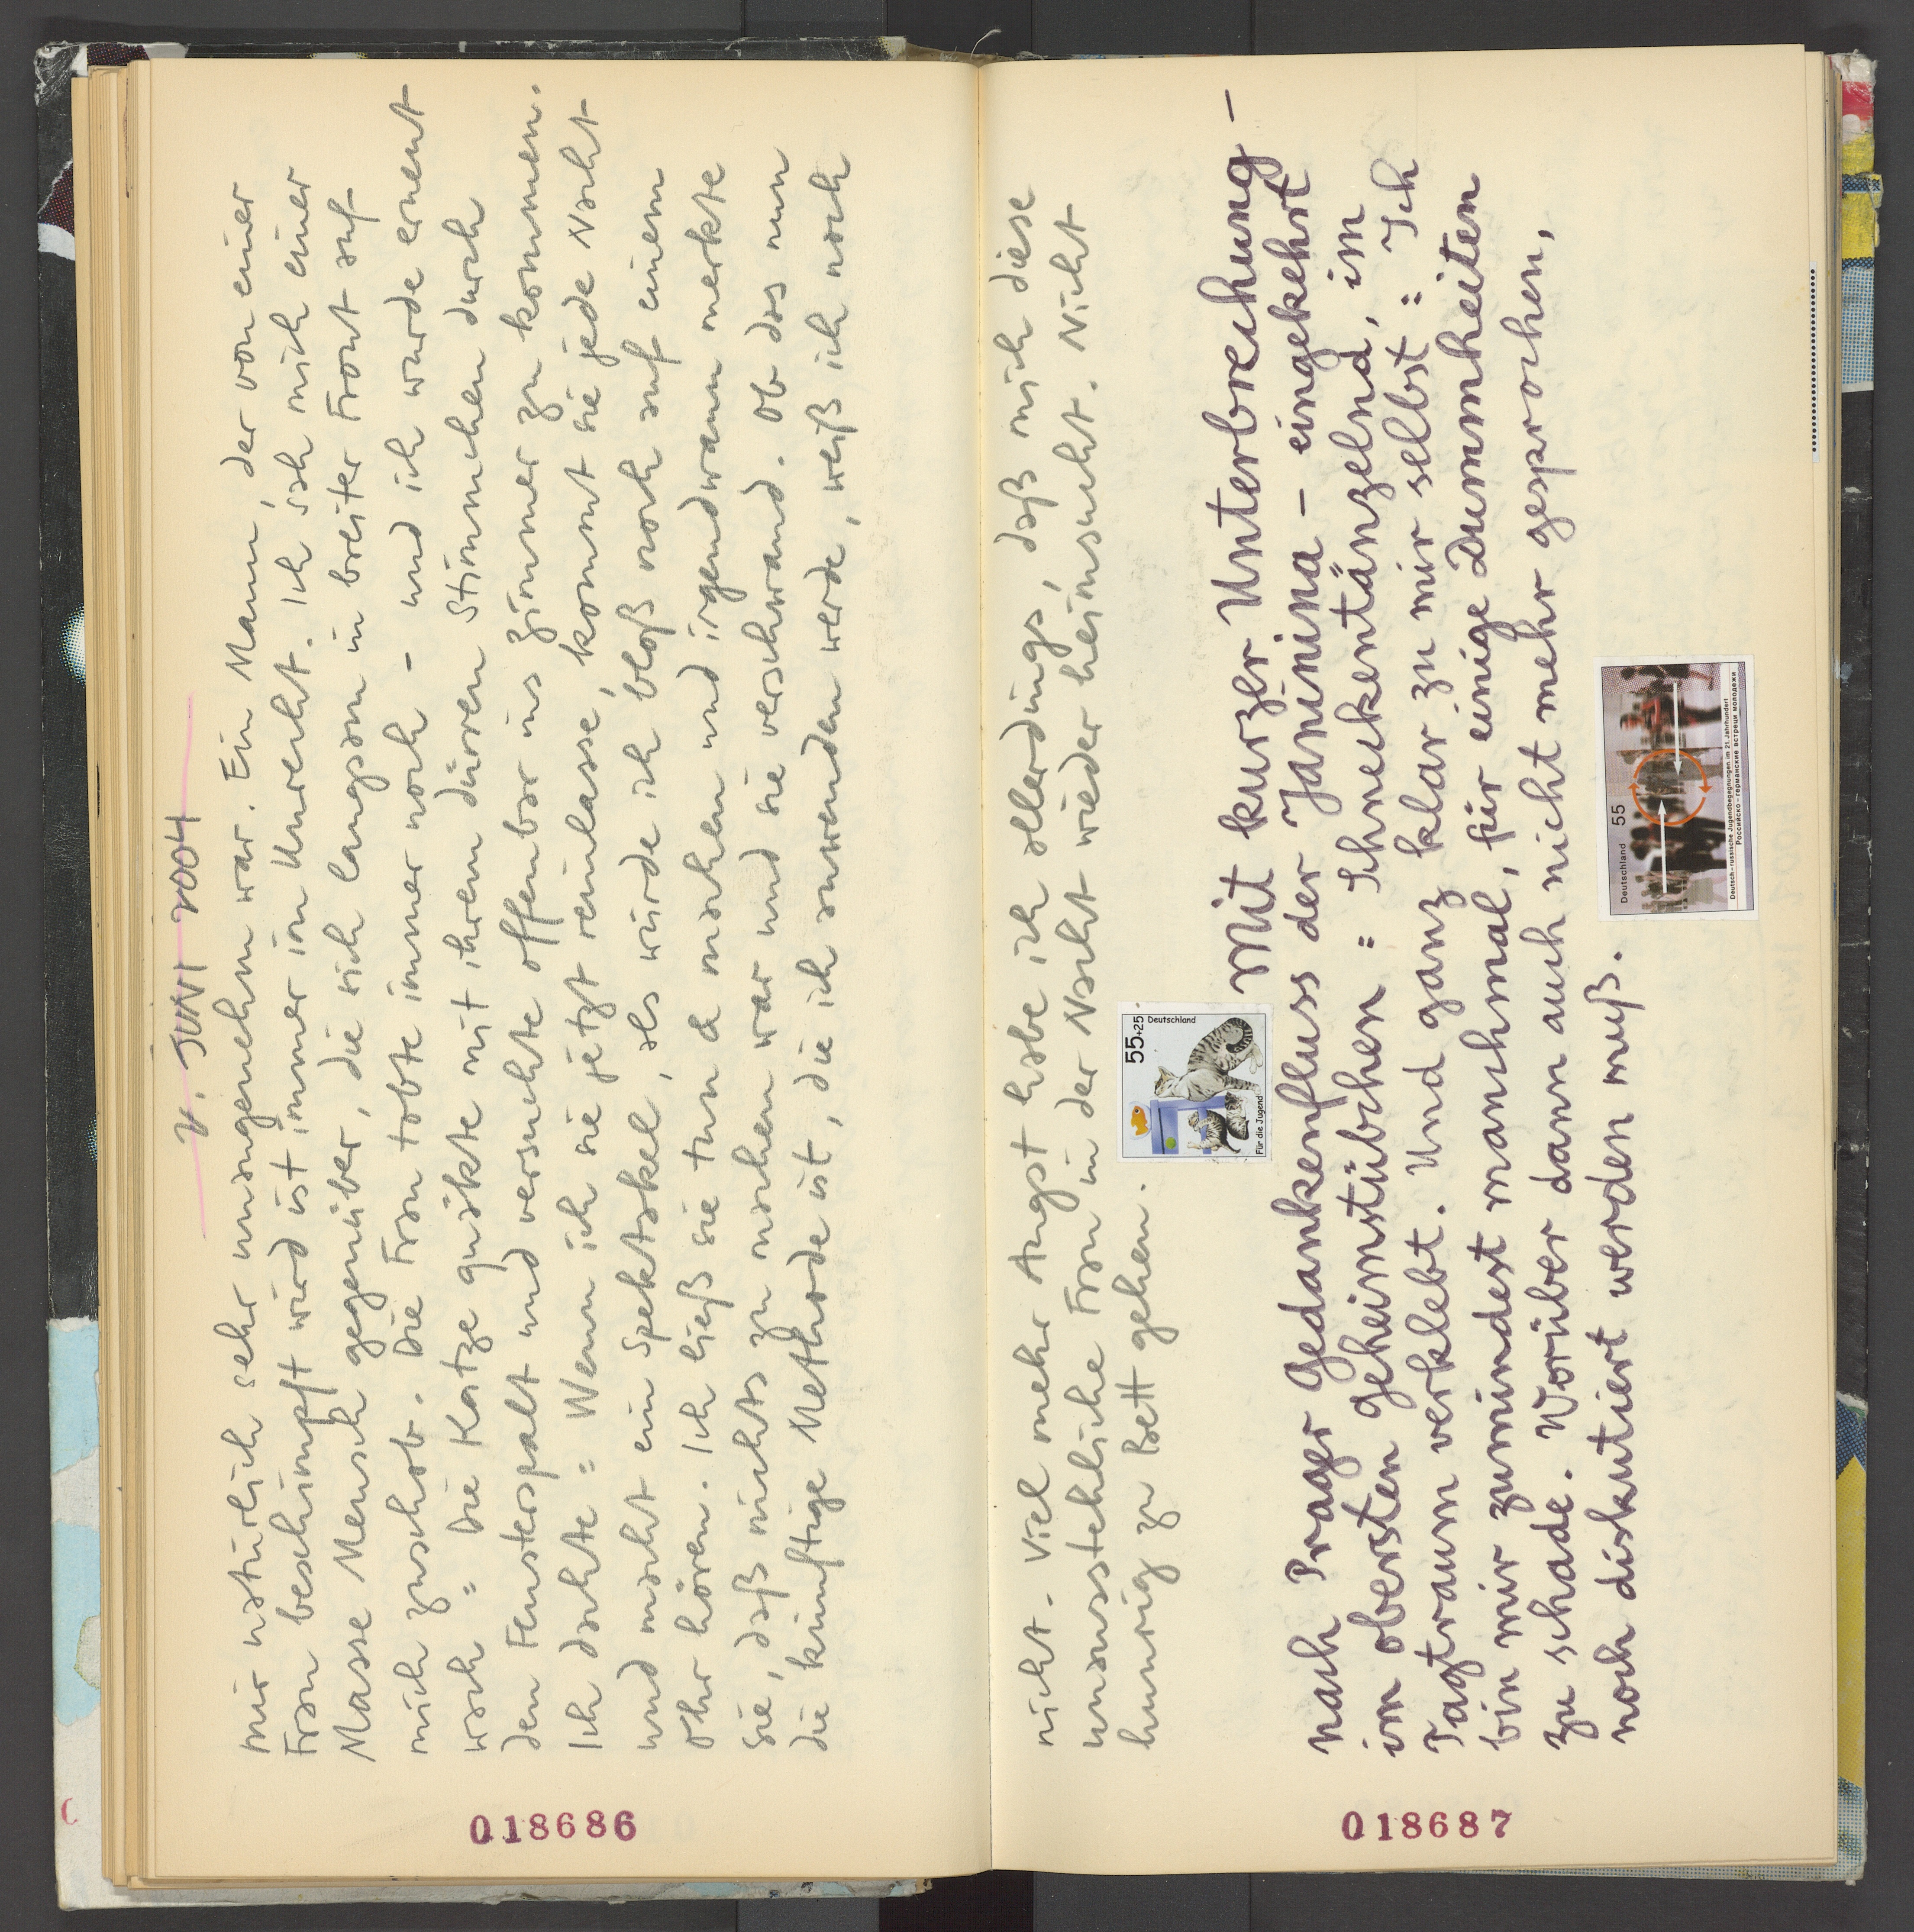 2. JUNI 2004
mir natürlich sehr unangenehm war. Ein Mann, der von einer
Frau beschimpft wird ist immer im Unrecht. Ich sah mich einer
Masse Mensch gegenüber, die sich langsam in breiter Front auf
mich zuschob. Die Frau tobte immer noch - und ich wurde erneut
wach = Die Katze quäkte mit ihrem dürren Stimmchen durch
den Fensterspalt und versuchte offenbar ins Zimmer zu kommen.
Ich dachte = Wenn ich sie jetzt reinlasse, kommt sie jede Nacht
und macht ein Spektakel, als würde ich bloß noch auf einem
Ohr hören. Ich ließ sie tun & machen und irgendwann merkte
sie, daß nichts zu machen war und sie verschwand. Ob das nun
die künftige Methode ist, die ich anwenden werde, weiß ich noch
018686
nicht. Viel mehr Angst habe ich allerdings, daß mich diese
unausstehliche Frau in der Nacht wieder heimsucht. Nicht
hungrig zu Bett gehen.
55+25 Deutschland
Für die Jugend
Mit kurzer Unterbrechung -
nach Prager Gedankenfluss der Janinina - eingekehrt
im obersten Geheimstübchen = Schneckentänzelnd, im
Tagtraum verklebt. Und ganz klar zu mir selbst = Ich
bin mir zumindest manchmal, für einige Dummheiten
zu schade. Worüber dann auch nicht mehr gesprochen,
noch diskutiert werden muß.
Deutschland 55
Deutsch-russische Jugendbegegnungen im 21. Jahrhundert
Российско-германские встречи молодежи
018687